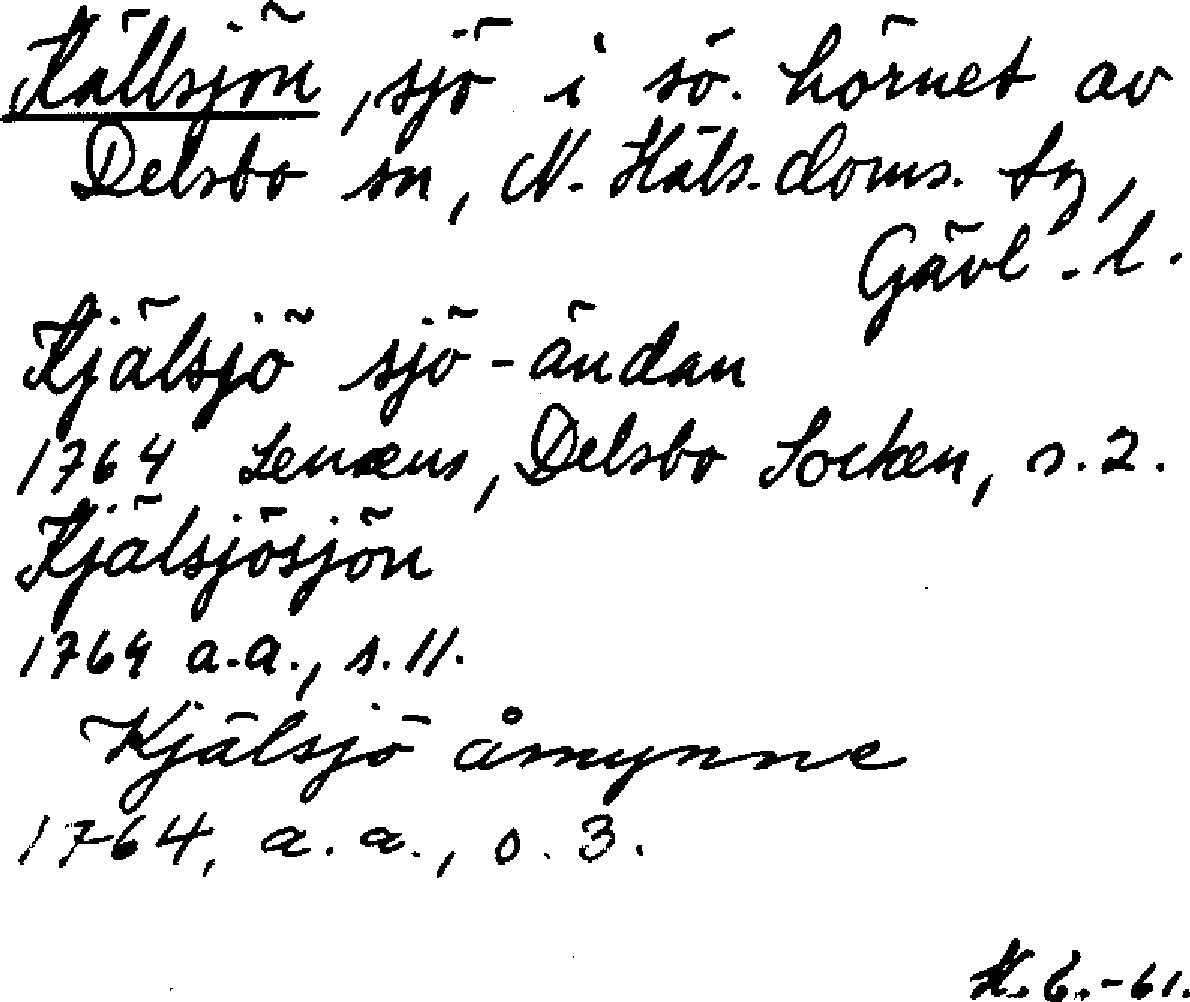 Källsjön, sjö i sö. hörnet av
Delsbo sn, N. Häls. doms. tg,
Gävl. l.
Kjälsjö sjö-ändan
1764 Lenæus, Delsbo Socken, s. 2.
Kjälsjösjön
1764 a.a., s. 11.
Kjälsjö åmynne
1764, a.a., s. 3.
-61.